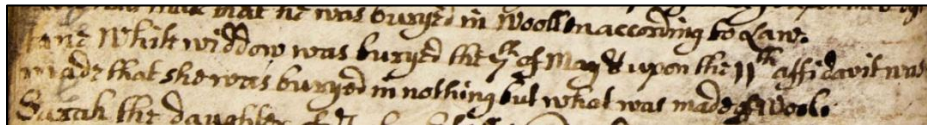 made that he was buryed in Woollen according to Law.
Jane White widdow was buryed the 7th of May & upon the 11th affidavit was
made that she was buryed in nothing but what was made of Wooll.
Sarah the daughter of